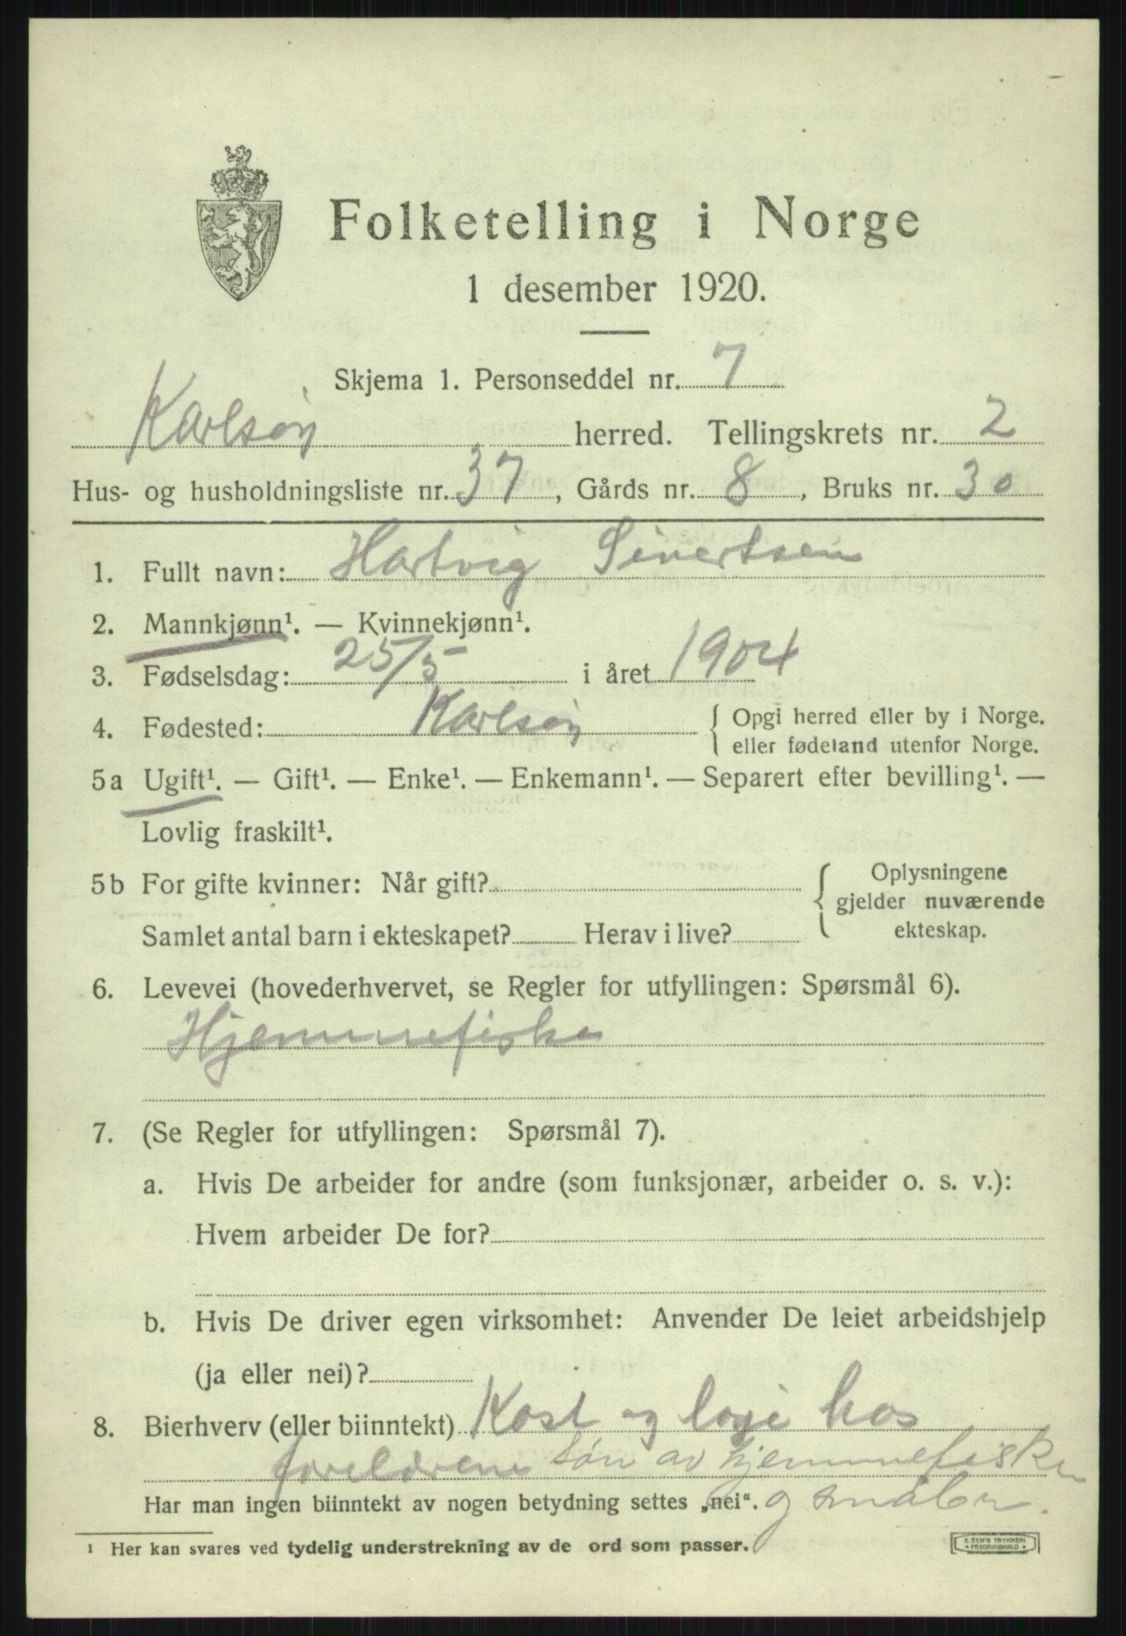 Folketelling i Norge
1 desember 1920.
Skjema 1. Personseddel nr. 7
Karlsøy herred. Tellingskrets nr. 2
Hus- og husholdningsliste nr. 37, Gårds nr. 8, Bruks nr. 30
1. Fullt navn: Hartvig Sivertsen
2. Mannkjønn¹. — Kvinnekjønn¹.
3. Fødselsdag: 25/5 i året 1904
4. Fødested: Karlsøy { Opgi herred eller by i Norge.
eller fødeland utenfor Norge.
5a Ugift¹. — Gift¹. — Enke¹. — Enkemann¹. — Separert efter bevilling¹. —
Lovlig fraskilt¹.
5b For gifte kvinner: Når gift? { Oplysningene
gjelder nuværende
Samlet antal barn i ekteskapet? Herav i live? ekteskap.
6. Levevei (hovederhvervet, se Regler for utfyllingen: Spørsmål 6).
Hjemmefisker
7. (Se Regler for utfyllingen: Spørsmål 7).
a. Hvis De arbeider for andre (som funksjonær, arbeider o. s. v.):
Hvem arbeider De for?
b. Hvis De driver egen virksomhet: Anvender De leiet arbeidshjelp
(ja eller nei)?
8. Bierhverv (eller biinntekt) Kost og losi hos
foreldrene søn av hjemmefisker
Har man ingen biinntekt av nogen betydning settes „nei“. og småbr.
¹ Her kan svares ved tydelig understrekning av de ord som passer.